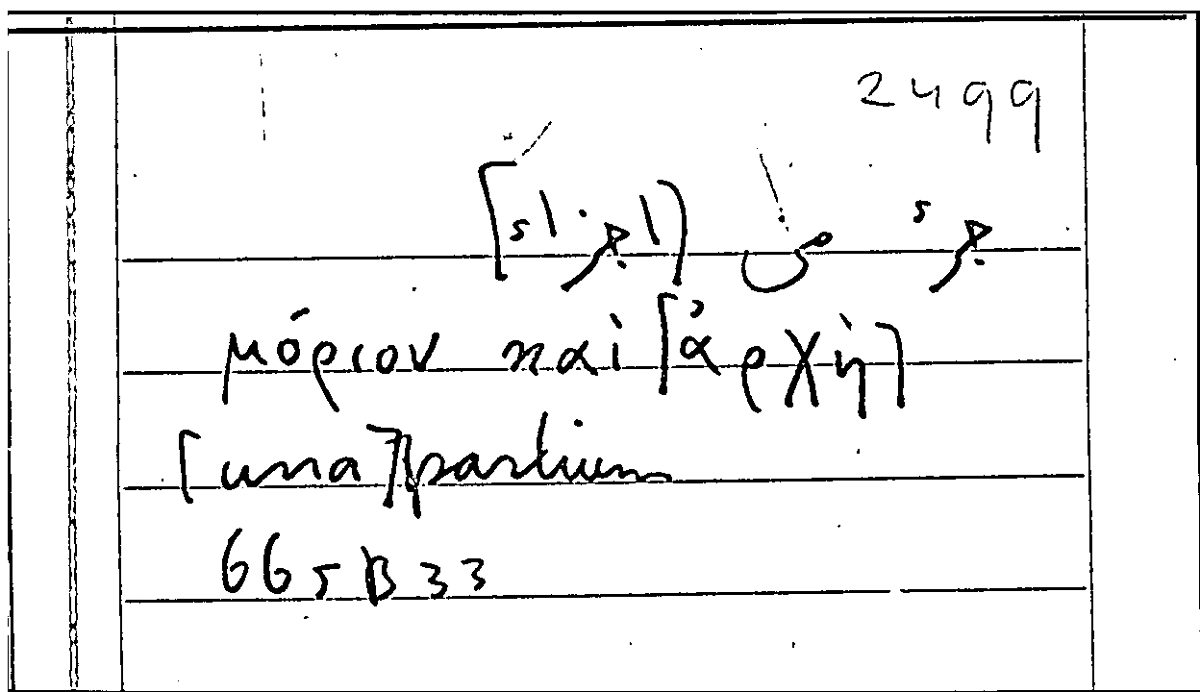 2499
جزء من [اجزاء]
μόριον καὶ [ἀρχὴ]
[una] partium
665B33